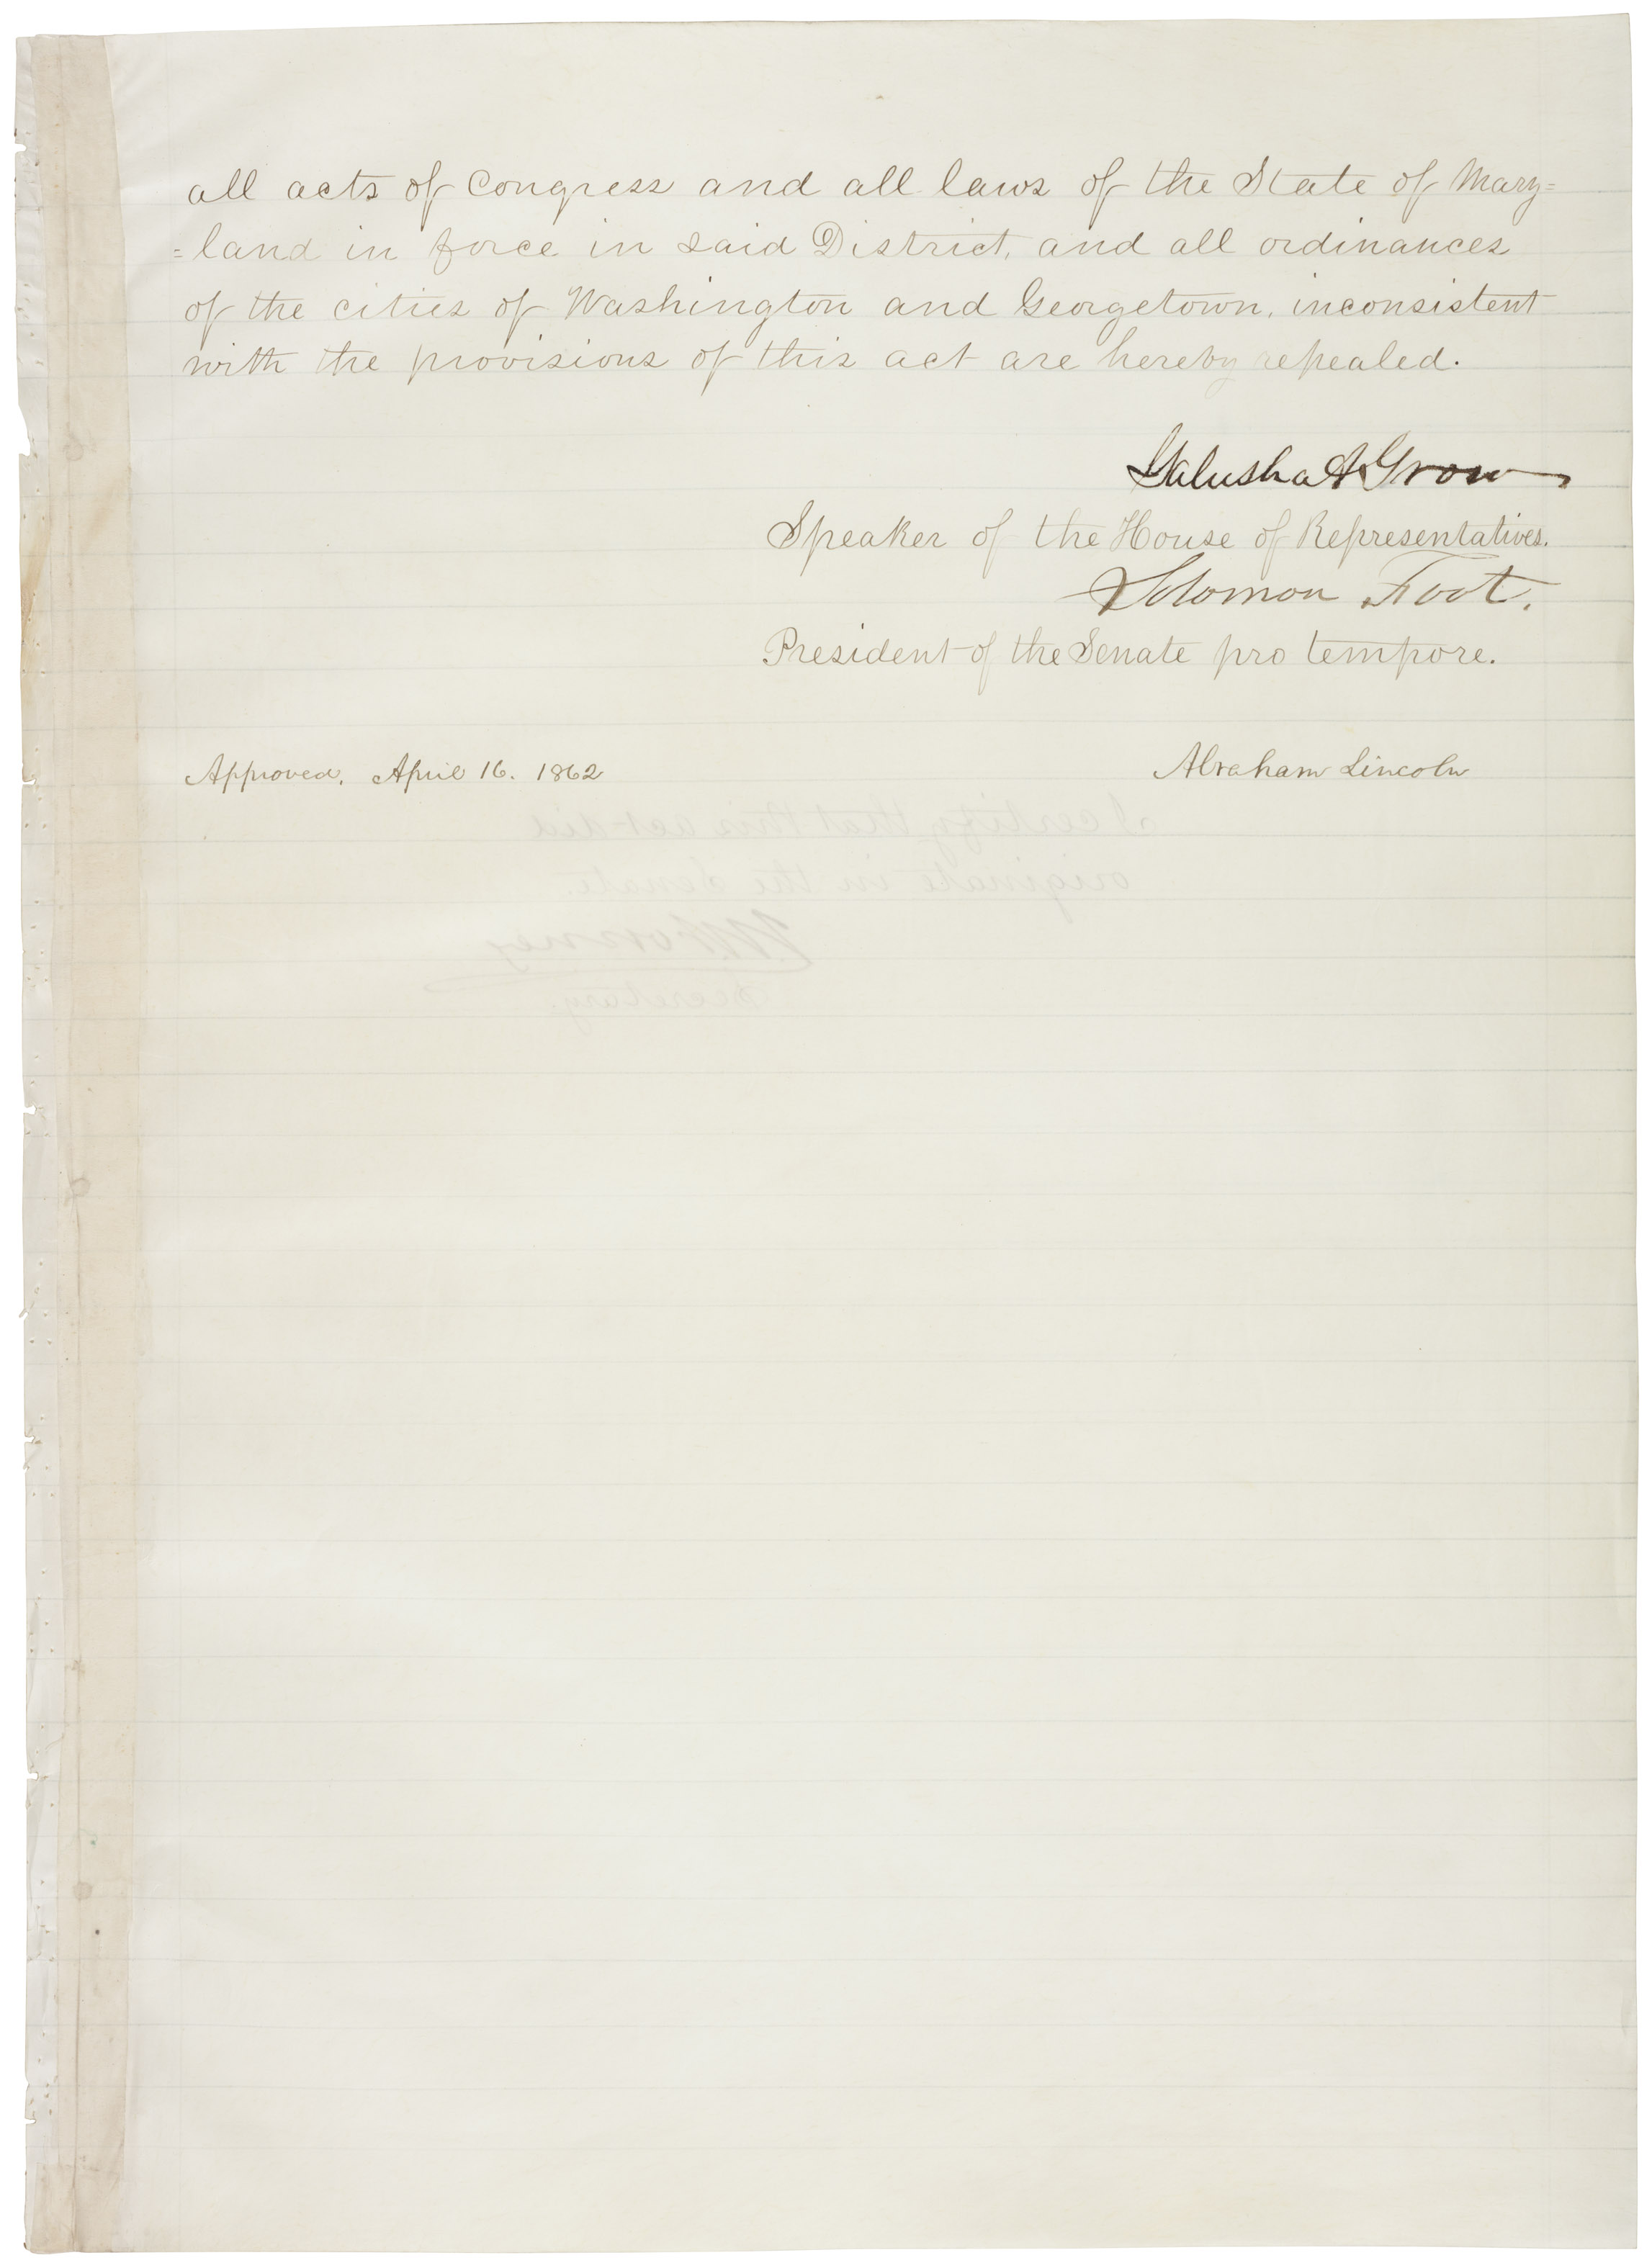 all acts of Congress and all laws of the State of Mary=
=land in force in said District, and all ordinances
of the cities of Washington and Georgetown, inconsistent
with the provisions of this act are hereby repealed.
Galusha A Grow
Speaker of the House of Representatives.
Solomon Foot.
President of the Senate pro tempore.
Approved, April 16. 1862
Abraham Lincoln
I certify that this act did
originate in the Senate.
Secretary.